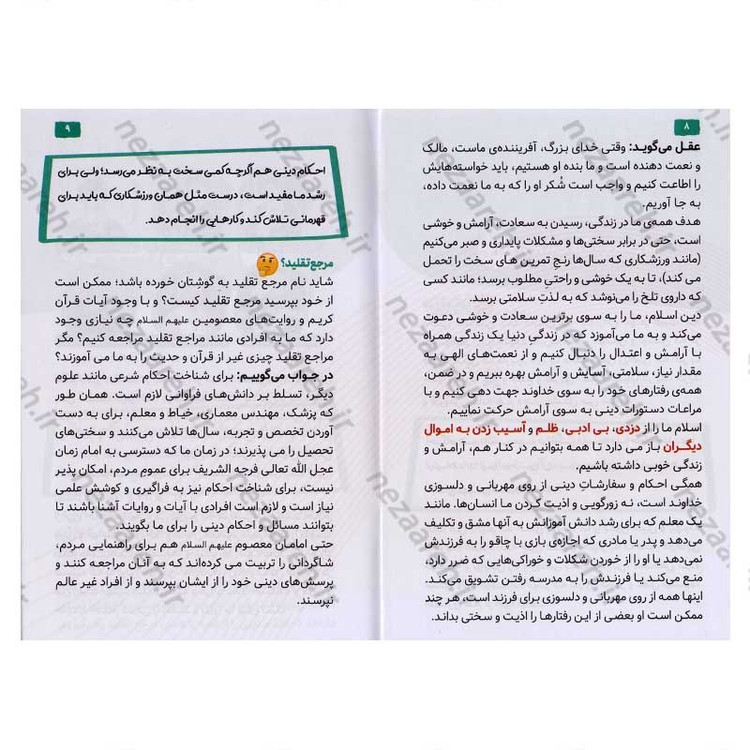 ۸
عقل می‌گوید: وقتی خدای بزرگ، آفریننده‌ی ماست، مالک
و نعمت دهنده است و ما بنده او هستیم، باید خواسته‌هایش
را اطاعت کنیم و واجب است شُکر او را که به ما نعمت داده،
به جا آوریم.
هدف همه‌ی ما در زندگی، رسیدن به سعادت، آرامش و خوشی
است، حتی در برابر سختی‌ها و مشکلات پایداری و صبر می‌کنیم
(مانند ورزشکاری که سال‌ها رنج تمرین های سخت را تحمل
می کند)، تا به یک خوشی و راحتیِ مطلوب برسد؛ مانند کسی
که داروی تلخ را می‌نوشد که به لذتِ سلامتی برسد.
دین اسلام، ما را به سوی برترین سعادت و خوشی دعوت
می‌کند و به ما می‌آموزد که در زندگیِ دنیا یک زندگی همراه
با آرامش و اعتدال را دنبال کنیم و از نعمت‌های الهی به
مقدار نیاز، سلامتی، آسایش و آرامش بهره ببریم و در ضمن،
همه‌ی رفتارهای خود را به سوی خداوند جهت دهی کنیم و با
مراعات دستورات دینی به سوی آرامش حرکت نماییم.
اسلام ما را از دزدی، بی ادبی، ظلم و آسیب زدن به اموال
دیگران باز می دارد تا همه بتوانیم در کنار هم، آرامش و
زندگی خوبی داشته باشیم.
همگی احکام و سفارشاتِ دینی از روی مهربانی و دلسوزی
خداوند است، نه زورگویی و اذیت کردن ما انسان‌ها. مانند
یک معلم که برای رشد دانش آموزانش به آنها مشق و تکلیف
می‌دهد و پدر یا مادری که اجازه‌ی بازی با چاقو را به فرزندش
نمی‌دهد یا او را از خوردن شکلات و خوراکی‌هایی که ضرر دارد،
منع می‌کند یا فرزندش را به مدرسه رفتن تشویق می‌کند.
اینها همه از روی مهربانی و دلسوزی برای فرزند است، هر چند
ممکن است او بعضی از این رفتارها را اذیت و سختی بداند.
۹
احکام دینی هم اگرچه کمی سخت به نظر می‌رسد؛ ولی برای
رشد ما مفید است، درست مثل همان ورزشکاری که باید برای
قهرمانی تلاش کند و کارهایی را انجام دهد.
مرجع تقلید؟
شاید نام مرجع تقلید به گوشِتان خورده باشد؛ ممکن است
از خود بپرسید مرجع تقلید کیست؟ و با وجود آیات قرآن
کریم و روایت‌های معصومین علیهم السلام چه نیازی وجود
دارد که ما به افرادی مانند مراجع تقلید مراجعه کنیم؟ مگر
مراجع تقلید چیزی غیر از قرآن و حدیث را به ما می آموزند؟
در جواب می‌گوییم: برای شناخت احکام شرعی مانند علوم
دیگر، تسلط بر دانش‌های فراوانی لازم است. همان طور
که پزشک، مهندس معماری، خیاط و معلم، برای به دست
آوردن تخصص و تجربه، سال‌ها تلاش می‌کنند و سختی‌های
تحصیل را می پذیرند؛ در زمان ما که دسترسی به امام زمان
عجل الله تعالی فرجه الشریف برای عمومِ مردم، امکان پذیر
نیست، برای شناخت احکام نیز به فراگیری و کوشش علمی
نیاز است و لازم است افرادی با آیات و روایات آشنا باشند تا
بتوانند مسائل و احکام دینی را برای ما بگویند.
حتی امامان معصوم علیهم السلام هم برای راهنمایی مردم،
شاگردانی را تربیت می کرده‌اند که به آنان مراجعه کنند و
پرسش‌های دینی خود را از ایشان بپرسند و از افراد غیر عالم
نپرسند.
nezaareh.ir